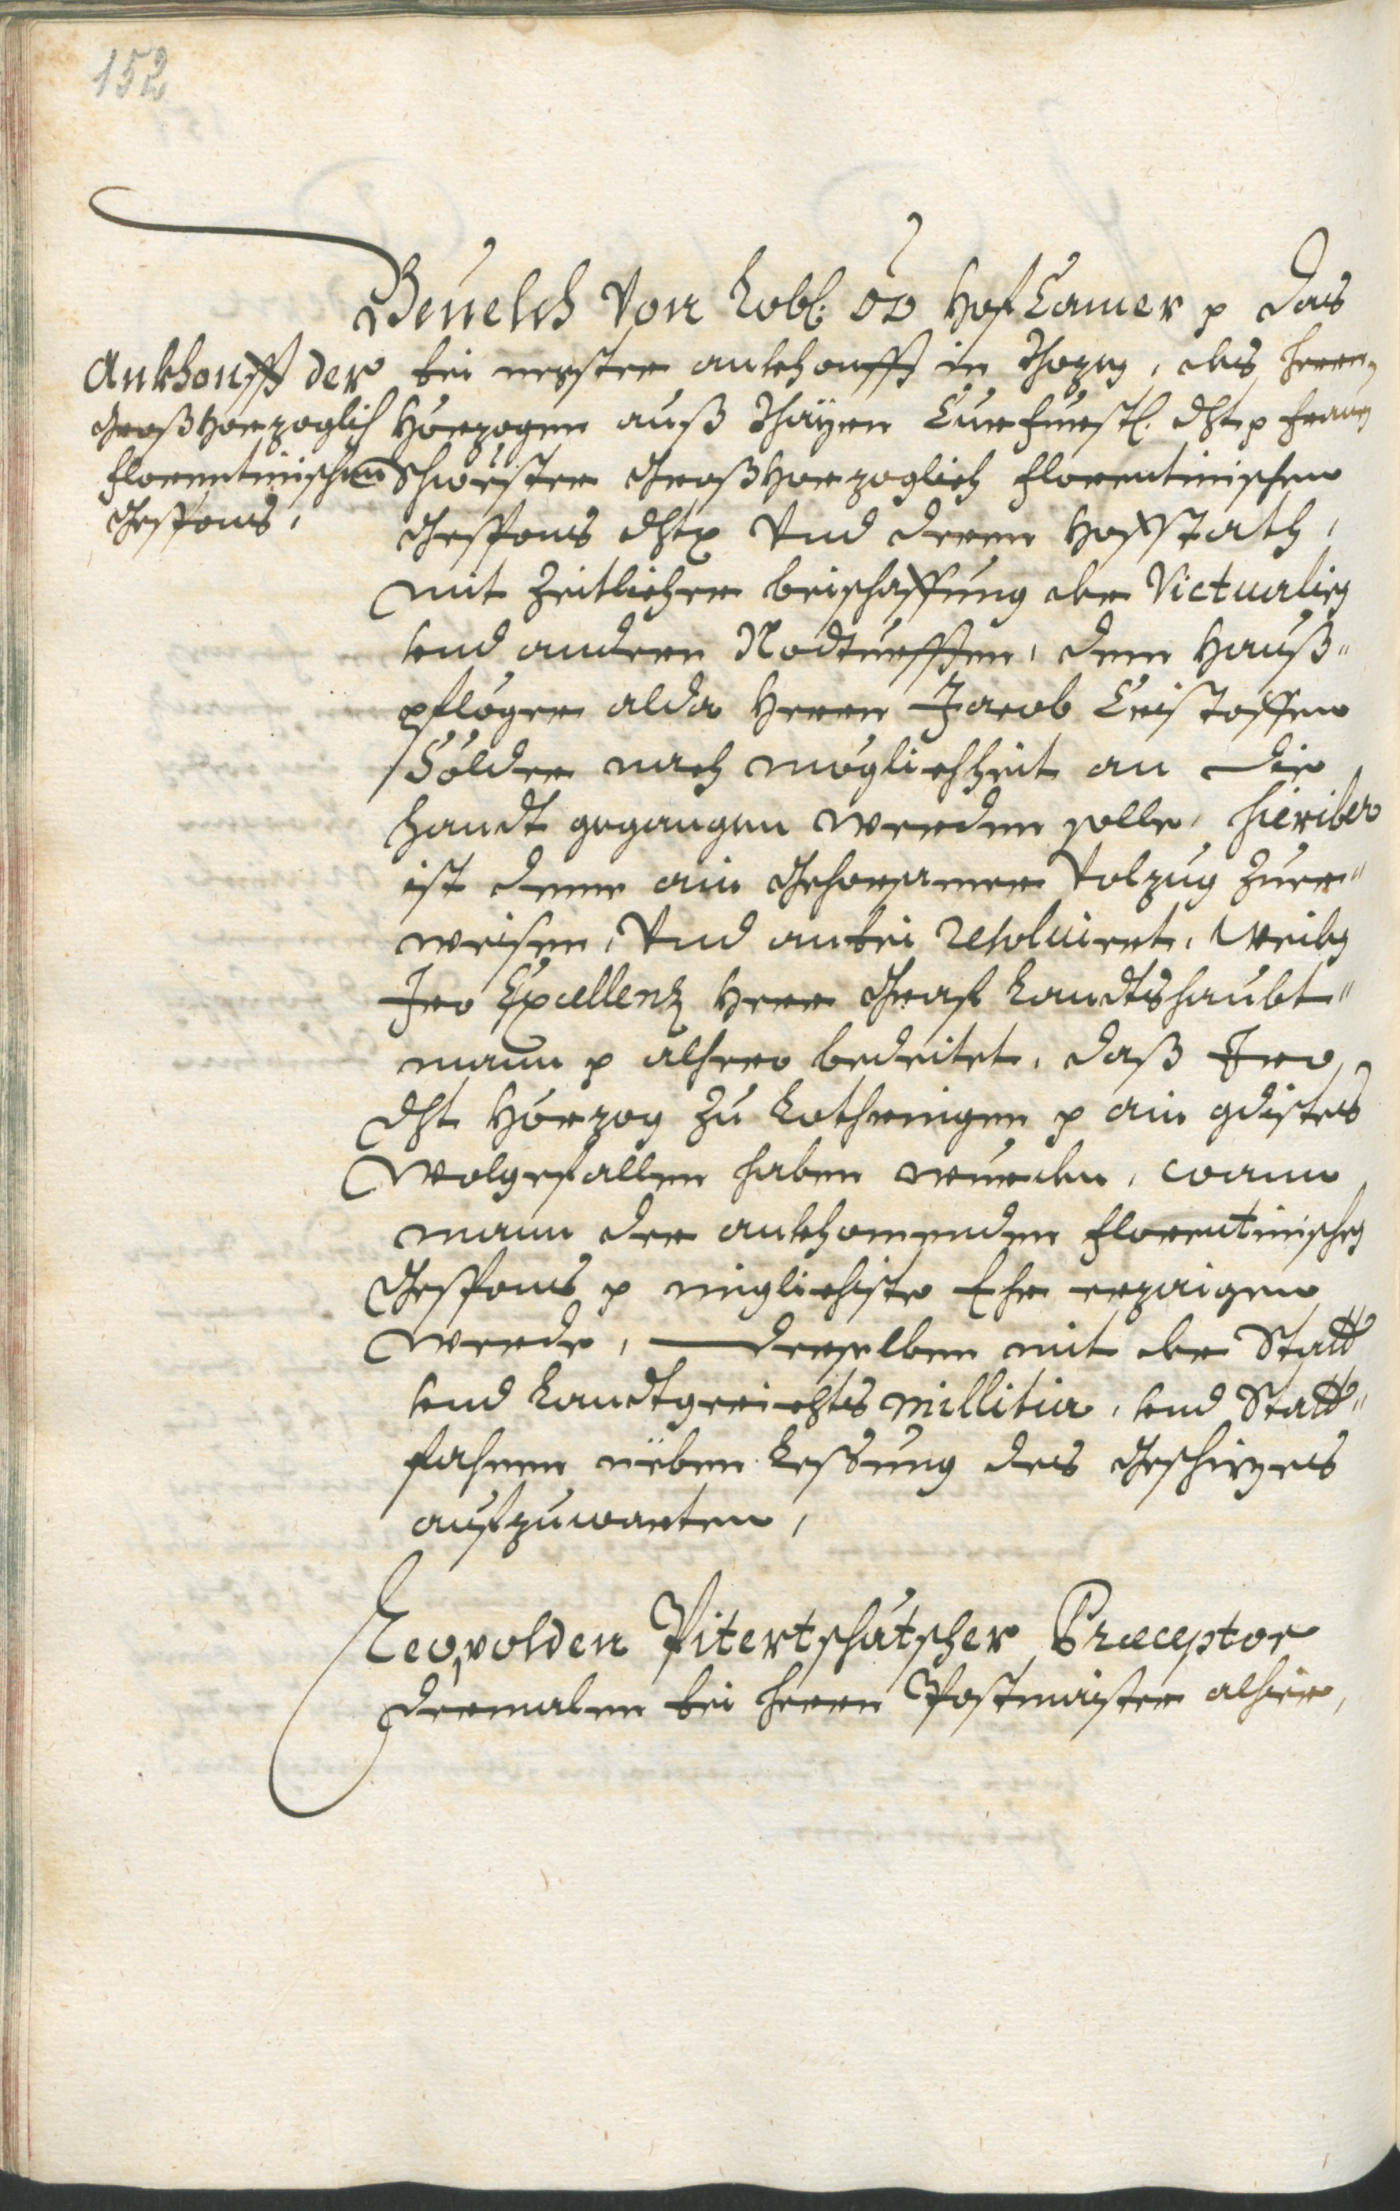 152
Beuelch Von Lobl: OÖ Hof Camer p das
Ankhonfft der
Großherzoglich
Florentinischen
Gesponß,
bei negster ankhonfft in Bozen, des Herrn
Herzogen auß Bayrn Curfürstl: dht p Frauen
Schwester Großherzoglich Florentinischen
Gesponß dht p Vnd deren Hoffstath,
mit zeitlicher beischaffung der Victualien
vnd andern Nodturfften, dem Hauß=
pfleger alda Herrn Jacob Cristoffen
Sölder nach möglichheit an die
handt gegangen werden solle, hieriber
ist deme ain Gehorsamer Volzug zuer=
weisen, Vnd anbei resoluiert, Weilen
Iro Excellenz Herr Graf Landtshaubt=
mann p alhero bedeitet, daß Iro
Dht Herzog zu Lothringen p ain gdistes
Wolgefallen haben wurden, wann
mann der ankhomenden Florentinischen
Gesponß p miglichiste Ehr erzaigen
werde, derselben mit der Statt
vnd Landtgerichts millitia, vnd Statt=
fahnen neben Lessung des Geschizes
aufzuwarten,
Leopolden Pitertschätscher Præceptor
dermalen bei Herrn Postmaister alhier,